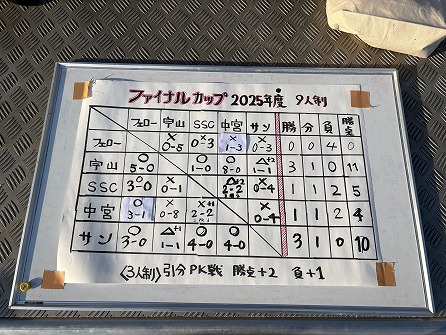 ファイナルカップ 2025年度 9人制
フェロー 宇山 SSC 中宮 サン 勝 分 負 勝点
フェロー × 0-5 × 0-3 × 1-3 × 0-3 0 0 4 0
宇山 ○ 5-0 ○ 1-0 ○ 8-0 △+2 1-1 3 1 0 11
SSC ○ 3-0 × 0-1 △+2 2-2 × 0-4 1 1 2 5
中宮 ○ 3-1 × 0-8 ×+1 2-2 × 0-4 1 1 2 4
サン ○ 3-0 △+1 1-1 ○ 4-0 ○ 4-0 3 1 0 10
〈3人制〉引分 PK戦 勝点+2 負+1